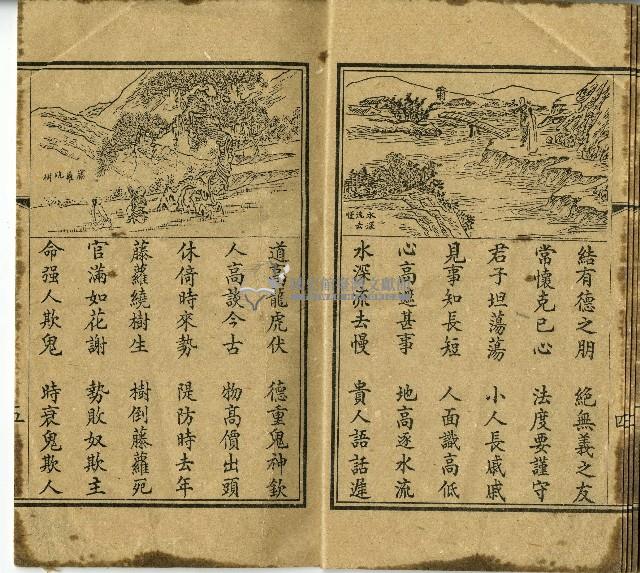 水深
流去
慢
結有德之朋　絕無義之友
常懷克己心　法度要謹守
君子坦蕩蕩　小人長戚戚
見事知長短　人面識高低
心高遮甚事　地高逐水流
水深流去慢　貴人語話遲
四
道高龍虎伏　德重鬼神欽
人高談今古　物高價出頭
休倚時來勢　隄防時去年
藤蘿繞樹生　樹倒藤蘿死
官滿如花謝　勢敗奴欺主
命强人欺鬼　時衰鬼欺人
五